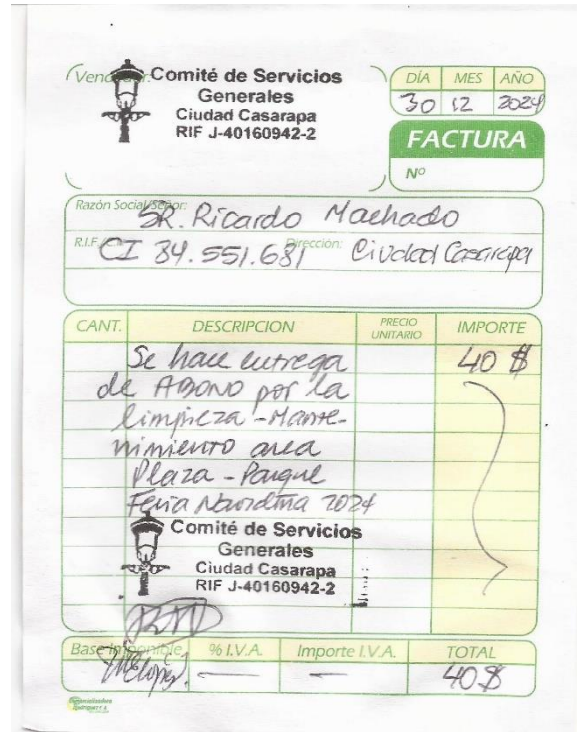 Vendedor:
Comité de Servicios
Generales
Ciudad Casarapa
RIF J-40160942-2
DÍA MES AÑO
30 12 2024
FACTURA
Nº
Razón Social/Señor:
SR. Ricardo Machado
R.I.F. CI 34.551.681 Dirección: Ciudad Casarapa
CANT. DESCRIPCION PRECIO UNITARIO IMPORTE
Se hace entrega 40 $
de ABONO por la
limpieza - Mante-
nimiento area
Plaza - Parque
Feria Navideña 2024
Comité de Servicios
Generales
Ciudad Casarapa
RIF J-40160942-2
Base Imponible % I.V.A. Importe I.V.A. TOTAL
— — 40 $